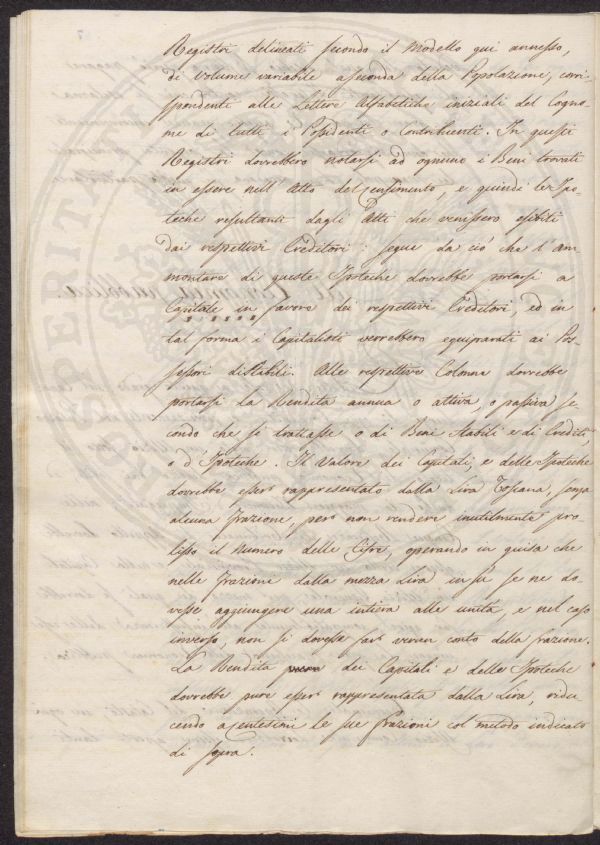 Registri delineati secondo il Modello qui annesso,
di Volume variabile a seconda della Popolazione, corri-
spondenti alle Lettere Alfabetiche iniziali del Cogno-
me di tutti i Possidenti o Contribuenti. In questi
Registri dovrebbero notarsi ad ognuno i Beni trovati
in essere nell'Atto del Censimento, e quindi le Ipo-
teche resultanti dagli Atti che venissero esibiti
dai respettivi Creditori: segue da ciò che l'am-
montare di queste Ipoteche dovrebbe portarsi a
Capitale in favore dei respettivi Creditori, ed in
tal forma i Capitalisti verrebbero equiparati ai Pos-
sessori di Stabili. Alle respettive Colonne dovrebbe
portarsi la Rendita annua o attiva, o passiva se-
condo che si trattasse o di Beni stabili e di Crediti,
o d'Ipoteche. Il Valore dei Capitali, e delle Ipoteche
dovrebbe esser rappresentato dalla Lira Toscana, senza
alcuna frazione, per non rendere inutilmente pro-
lisso il Numero delle Cifre, operando in guisa che
nelle frazione dalla mezza Lira in su se ne do-
vesse aggiungere una intiera alle unità, e nel caso
inverso, non si dovesse far verun conto della frazione.
La Rendita dei Capitali e delle Ipoteche
dovrebbe pure esser rappresentata dalla Lira, ridu-
cendo a Centesimi le sue frazioni col metodo indicato
di sopra.